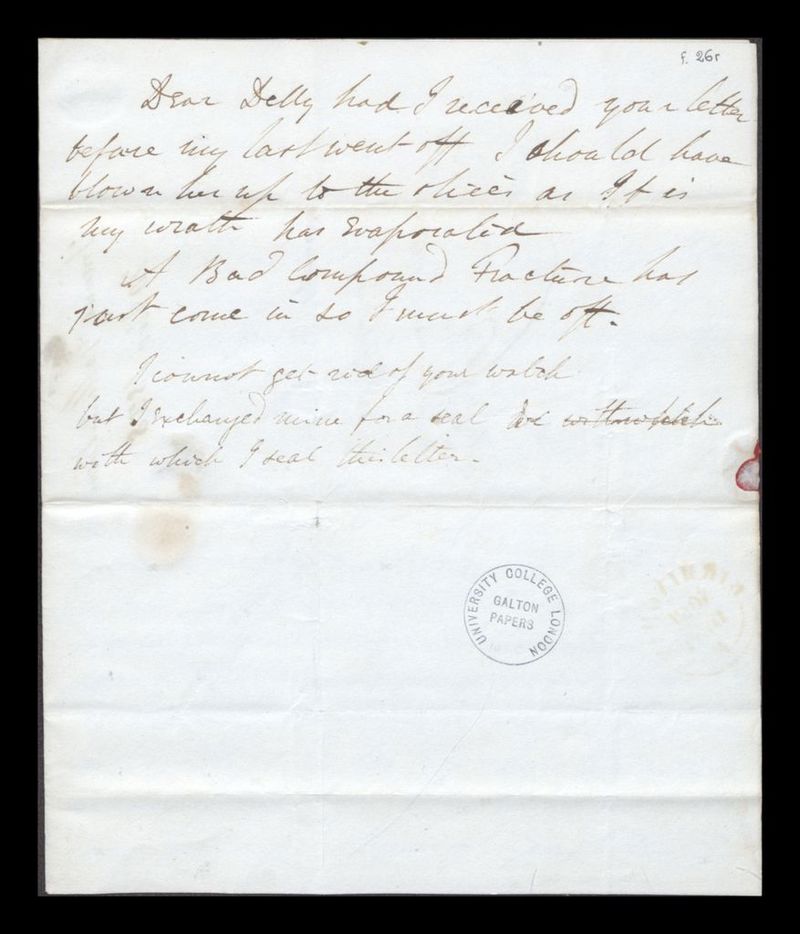 f. 26r
Dear Delly had I received your letter
before my last went off I should have
blown her up to the skies as It is
my wrath has Evaporated
A Bad Compound Fracture has
just come in so I must be off.
I cannot get rid of your watch
but I exchanged mine for a seal &c with which
with which I seal this letter.
UNIVERSITY COLLEGE LONDON
GALTON
PAPERS